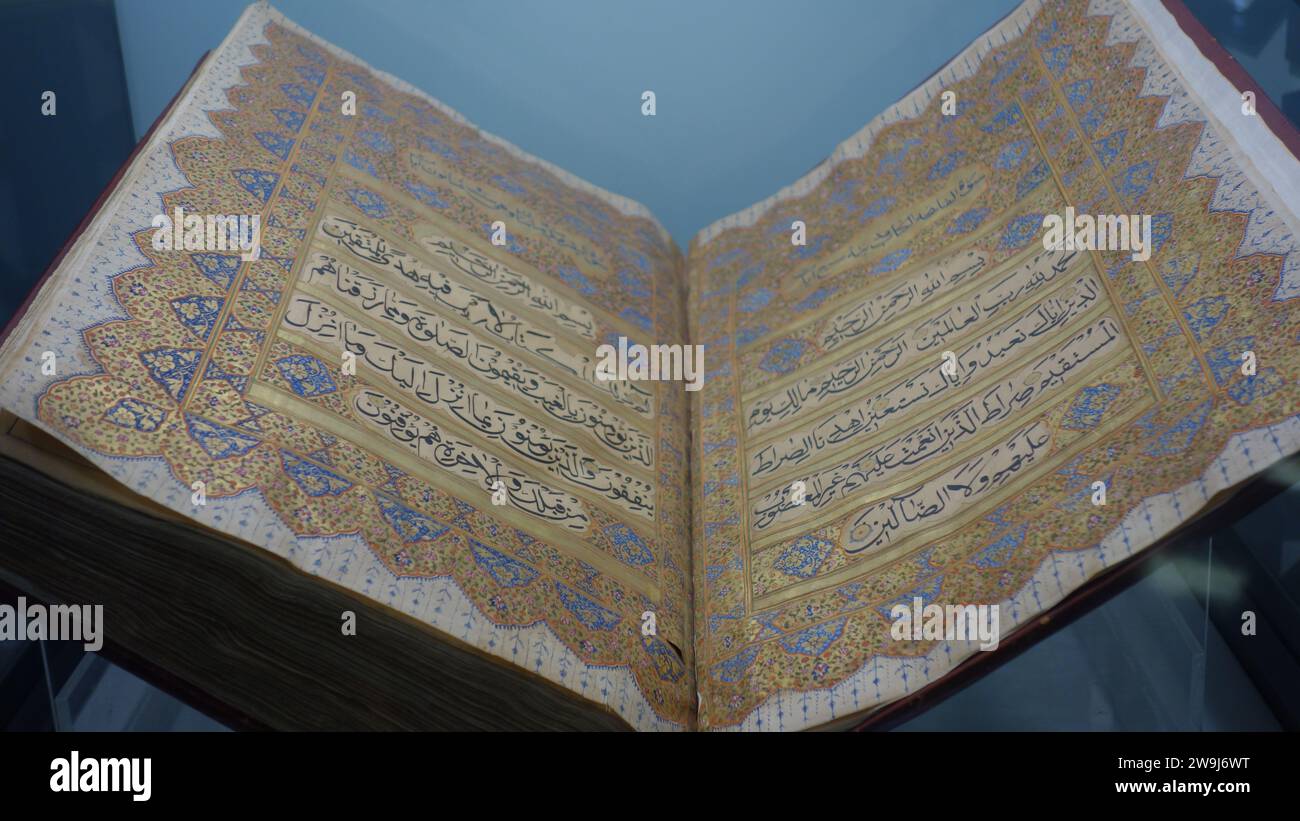 بسم الله الرحمن الرحيم
الحمد لله رب العالمين الرحمن الرحيم مالك يوم
الدين اياك نعبد واياك نستعين اهدنا الصراط
المستقيم صراط الذين انعمت عليهم غير المغضوب
عليهم ولا الضآلين
بسم الله الرحمن الرحيم
الم ذلك الكتاب لا ريب فيه هدى للمتقين
الذين يؤمنون بالغيب ويقيمون الصلوة ومما رزقناهم
ينفقون والذين يؤمنون بما انزل اليك وما انزل
من قبلك وبالاخرة هم يوقنون
alamy
alamy
alamy
alamy
alamy
alamy
Image ID: 2W9J6WT
www.alamy.com